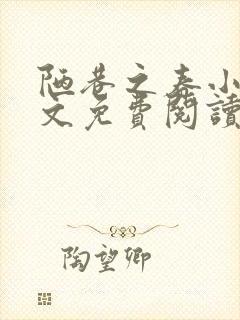 陋巷之春小
文免費閱讀
陶望卿